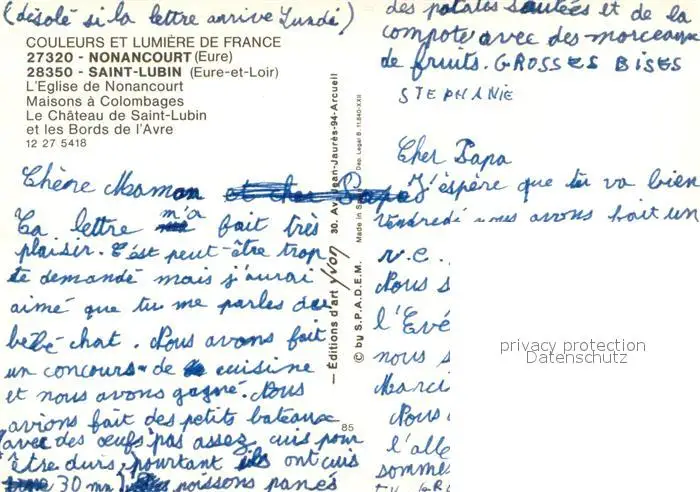 (désolé si la lettre arrive Lundi)
COULEURS ET LUMIÈRE DE FRANCE
27320 - NONANCOURT (Eure)
28350 - SAINT-LUBIN (Eure-et-Loir)
L'Eglise de Nonancourt
Maisons à Colombages
Le Château de Saint-Lubin
et les Bords de l'Avre
12 27 5418
Chère Maman et cher Papa
Ta lettre m'a fait très
plaisir. C'est peut-être trop
te demandé mais j'aurai
aimé que tu me parles du
bébé chat. Nous avons fait
un concours de cuisine
et nous avons gagné. Nous
avions fait des petits bateaux
(avec des œufs pas assez cuis pour
être durs, pourtant ils ont cuis
30 mn) poissons panés
85
— Éditions d'art yvon 30, Av. Jean-Jaurès-94-Arcueil
© by S.P.A.D.E.M. Made in Dép. Légal B. 11.840-XXII
des patates sautées et de la
compote avec des morceaux
de fruits. GROSSES BISES
STEPHANIE
Cher Papa
J'espère que tu va bien
Vendredi nous avons fait un
v.c.
Nous s
l'Evé
nous s
Marci
Nous
l'alle
somme
privacy protection
Datenschutz